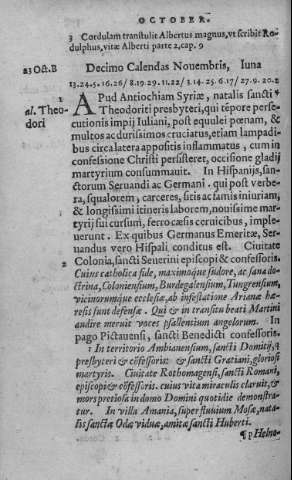 OCTOBER.
3 Cordulam transtulit Albertus magnus, vt scribit Ro-
dulphus, vitæ Alberti parte 2, cap. 9
23 Oct. B Decimo Calendas Nouembris, Luna
13.24.5.16.26/8.19.29.11.22/3.14.25.6.17/27.9.20.2
1 APud Antiochiam Syriæ, natalis sancti
al. Theo- Theodoriti presbyteri, qui tēpore perse-
dori cutionis impij Iuliani, post equulei pœnam, &
multos ac durissimos cruciatus, etiam lampadi-
bus circa latera appositis inflammatus, cum in
confessione Christi persisteret, occisione gladij
martyrium consummauit. In Hispanijs, san-
ctorum Seruandi ac Germani. qui post verbe-
ra, squalorem, carceres, sitis ac famis iniuriam,
& longissimi itineris laborem, nouissime mar-
tyrij sui cursum, ferro cæsis ceruicibus, imple-
uerunt. Ex quibus Germanus Emeritæ, Ser-
uandus vero Hispali conditus est. Ciuitate
2 Colonia, sancti Seuerini episcopi & confessoris.
Cuius catholica fide, maximoque sudore, ac sana do-
ctrina, Coloniensium, Burdegalensium, Tungrensium,
vicinorumque ecclesiæ, ab infestatione Arianæ hæ-
resis sunt defensæ. Qui & in transitu beati Martini
audire meruit voces psallentium angelorum. In
pago Pictauensi, sancti Benedicti confessoris.
1 In territorio Ambianensium, sancti Domitij,
presbyteri & cōfessoris: & sancti Gratiani, gloriosi
martyris. Ciuitate Rothomagensi, sancti Romani,
episcopi & cōfessoris. cuius vita miraculis claruit, &
mors pretiosa in domo Domini quotidie demonstra-
tur. In villa Amania, super fluuium Mosæ, nata-
lis sanctæ Odæ viduæ, amitæ sancti Huberti.